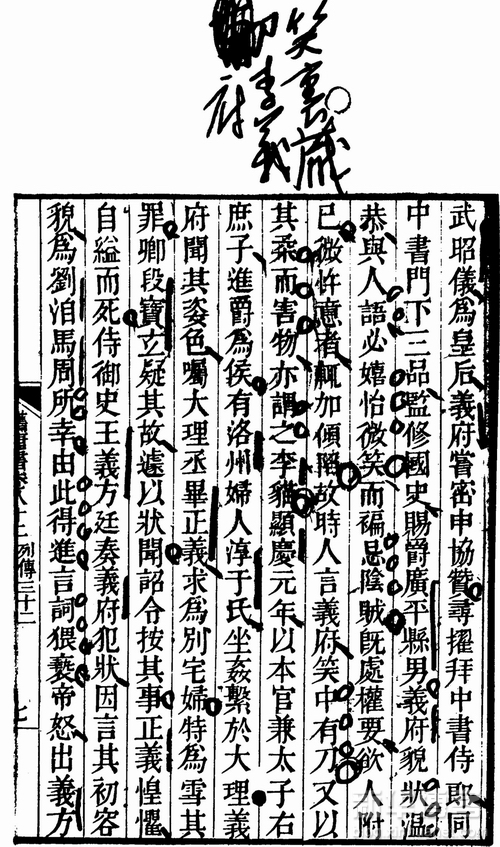 笑裏藏
刀李義
府
武昭儀爲皇后義府嘗密申協贊尋擢拜中書侍郎同
中書門下三品監修國史賜爵廣平縣男義府貌狀温
恭與人語必嬉怡微笑而褊忌陰賊既處權要欲人附
已微忤意者輒加傾陷故時人言義府笑中有刀又以
其柔而害物亦謂之李貓顯慶元年以本官兼太子右
庶子進爵爲侯有洛州婦人淳于氏坐姦繫於大理義
府聞其姿色囑大理丞畢正義求爲別宅婦特爲雪其
罪卿段寶玄疑其故遽以狀聞詔令按其事正義惶懼
自縊而死侍御史王義方廷奏義府犯狀因言其初容
貌爲劉洎馬周所幸由此得進言詞猥褻帝怒出義方
舊唐書卷八十二 列傳三十二 七